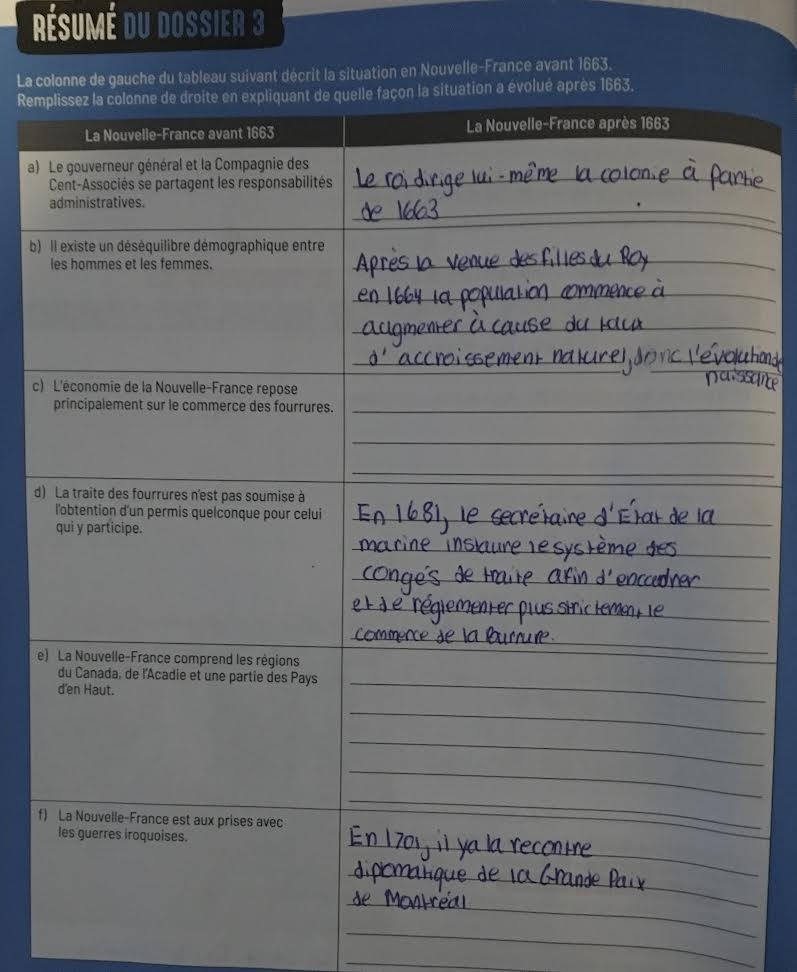 RÉSUMÉ DU DOSSIER 3
La colonne de gauche du tableau suivant décrit la situation en Nouvelle-France avant 1663.
Remplissez la colonne de droite en expliquant de quelle façon la situation a évolué après 1663.
La Nouvelle-France avant 1663
La Nouvelle-France après 1663
a) Le gouverneur général et la Compagnie des
Cent-Associés se partagent les responsabilités
administratives.
Le roi dirige lui-même la colonie à partie
de 1663
b) Il existe un déséquilibre démographique entre
les hommes et les femmes.
Après la venue des filles du Roy
en 1664 la population commence à
augmenter à cause du taux
d'accroissement naturel, donc l'évolution de
naissance
c) L'économie de la Nouvelle-France repose
principalement sur le commerce des fourrures.
d) La traite des fourrures n'est pas soumise à
l'obtention d'un permis quelconque pour celui
qui y participe.
En 1681, le secrétaire d'État de la
marine instaure le système des
congés de traite afin d'encadrer
et de réglementer plus strictement le
commerce de la fourrure.
e) La Nouvelle-France comprend les régions
du Canada, de l'Acadie et une partie des Pays
d'en Haut.
f) La Nouvelle-France est aux prises avec
les guerres iroquoises.
En 1701, il y a la recontre
diplomatique de la Grande Paix
de Montréal